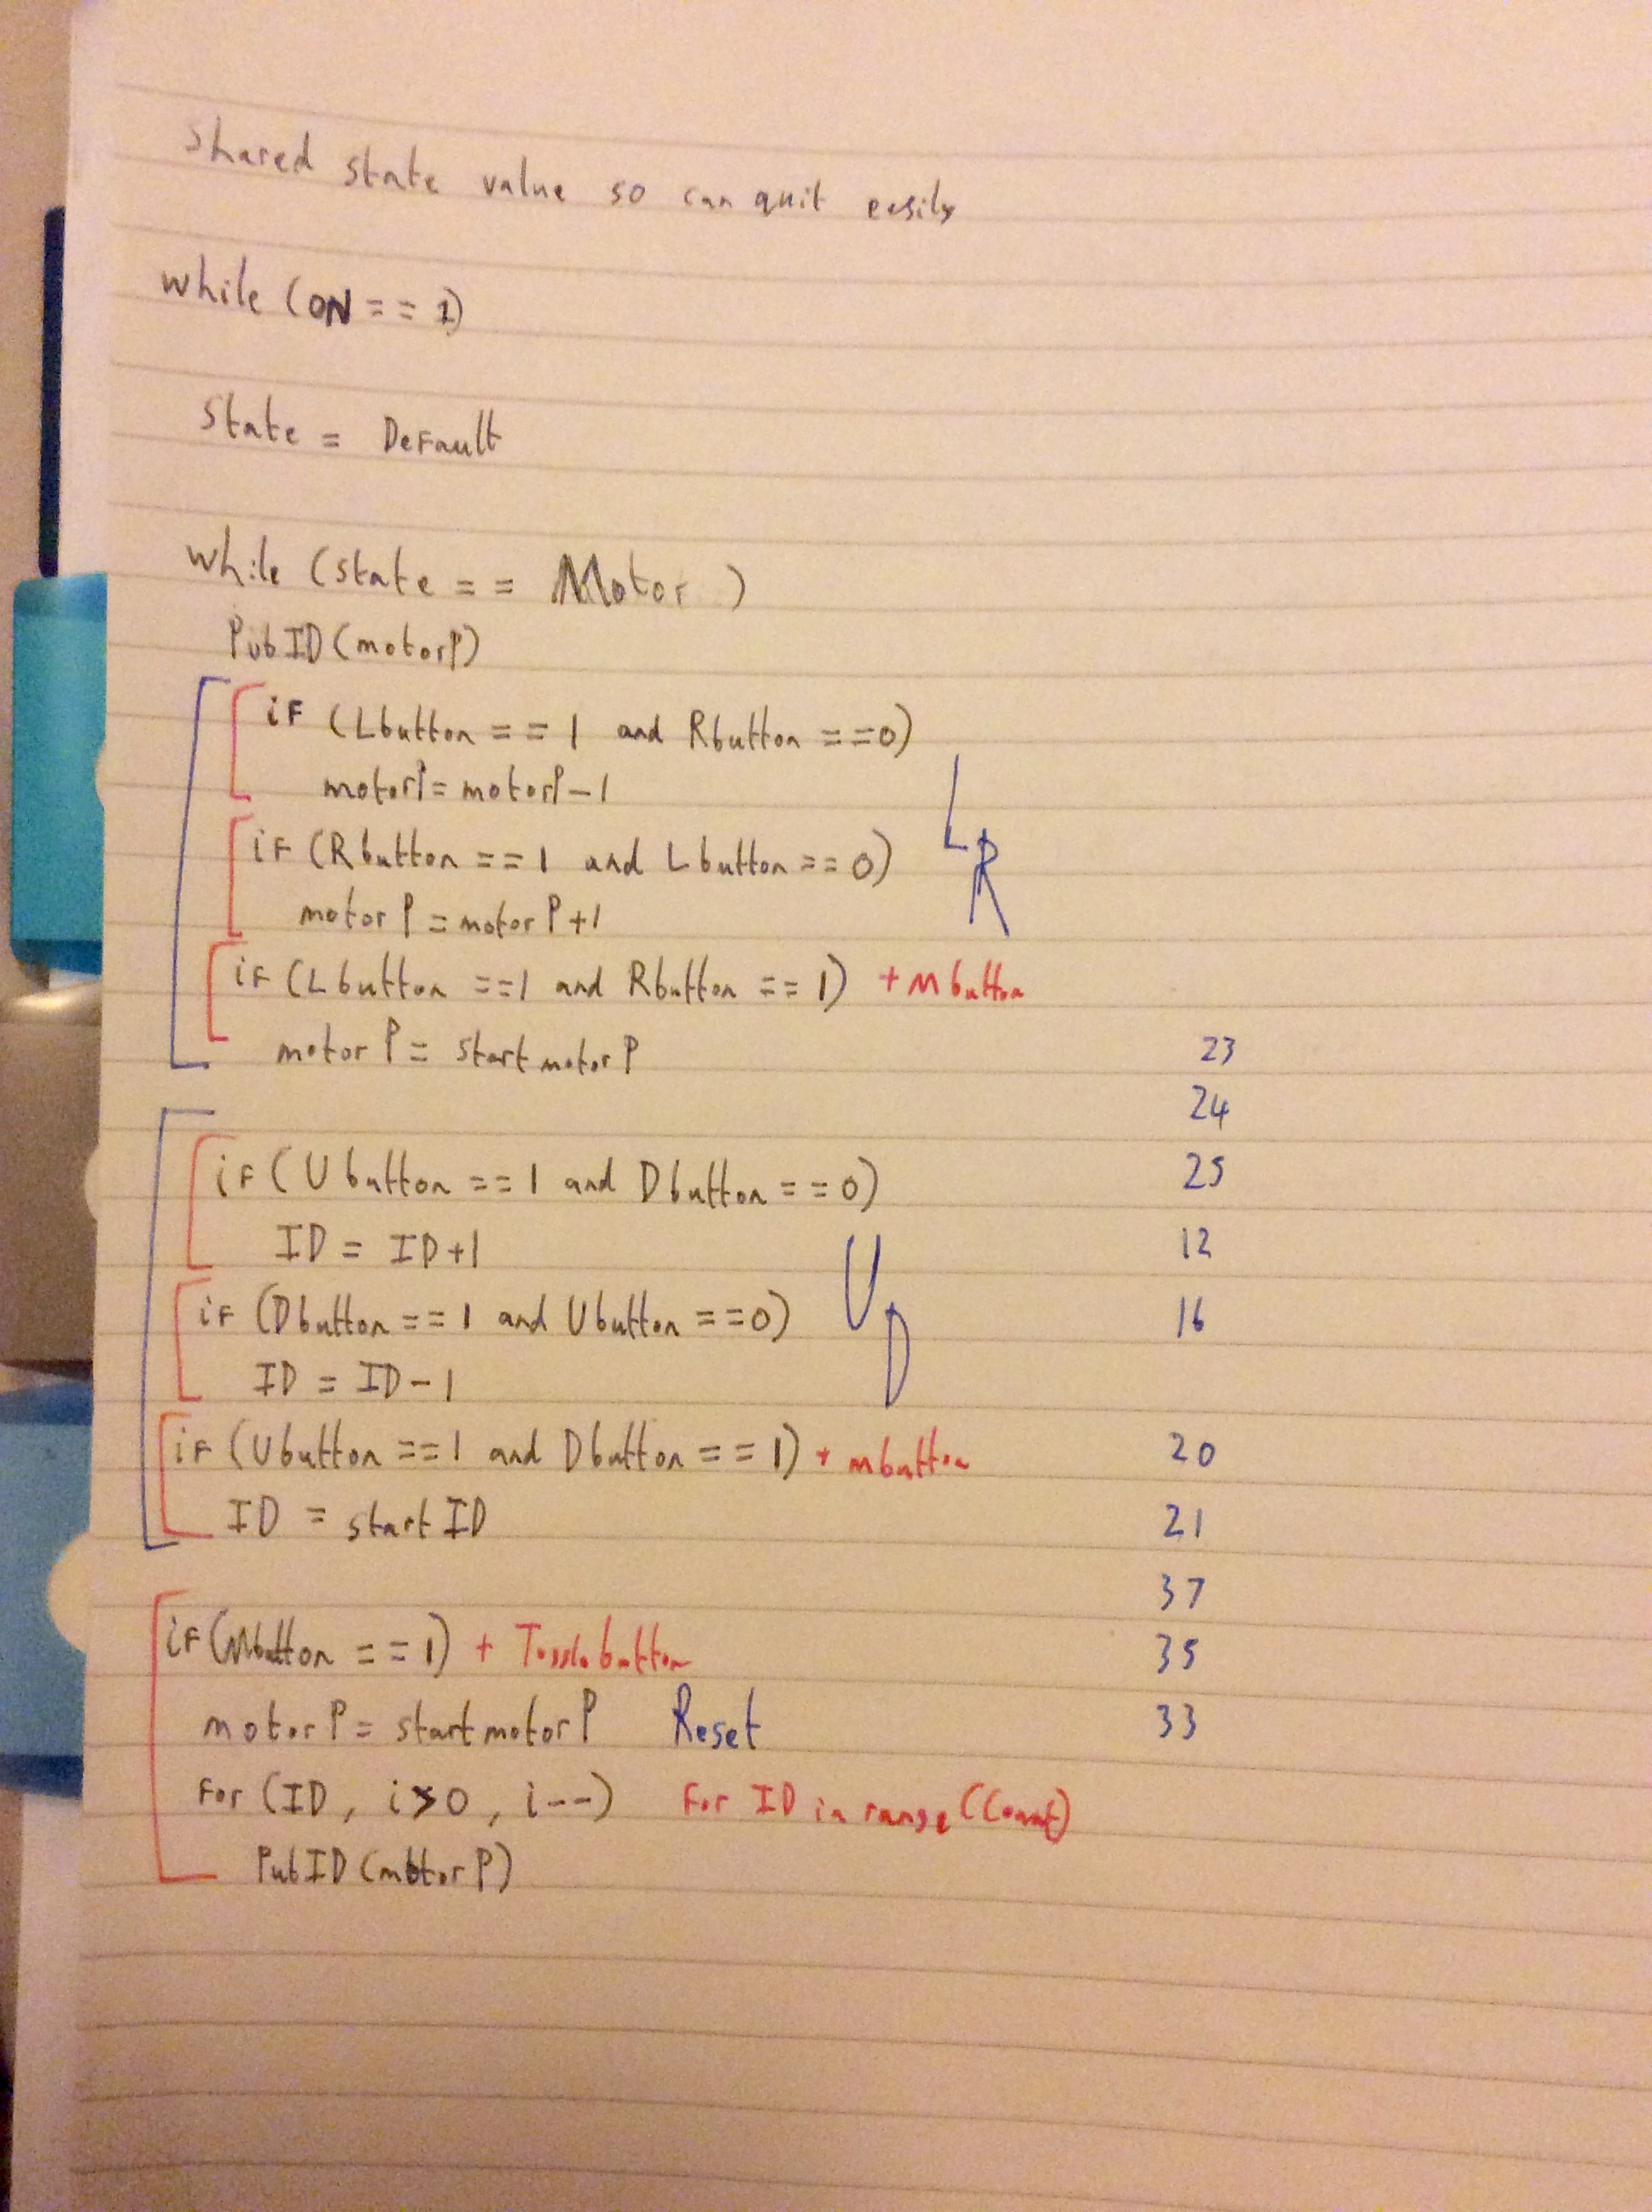 Shared state value so can quit easily
while (ON == 1)
State = Default
while (state == Motor )
PubID(motorP)
if (Lbutton == 1 and Rbutton ==0)
motorP= motorP-1
L
if (Rbutton ==1 and Lbutton == 0)
R
motorP = motorP+1
if (Lbutton ==1 and Rbutton == 1) + Mbutton
motorP = startmotorP 23
24
if (Ubutton ==1 and Dbutton ==0) 25
ID = ID+1 12
U
if (Dbutton == 1 and Ubutton ==0) 16
D
ID = ID-1
if (Ubutton ==1 and Dbutton == 1) + mbutton 20
ID = startID 21
37
if (Mbutton ==1) + Togglebutton 35
motorP = startmotorP Reset 33
for (ID, i>0, i--) for ID in range(Count)
PubID(motorP)